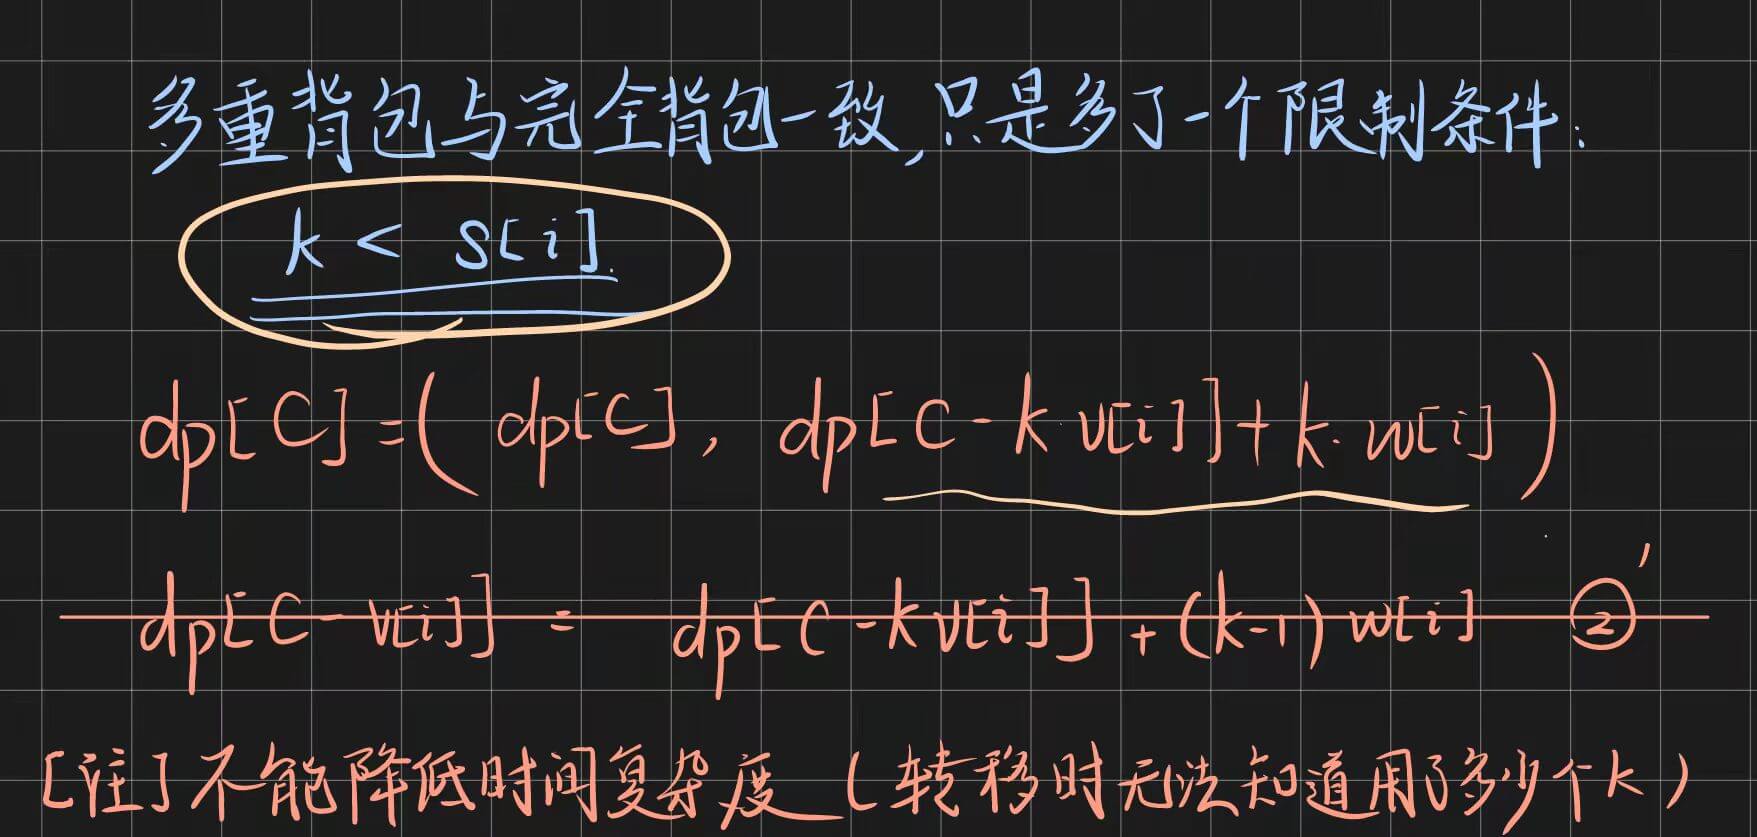 多重背包与完全背包一致,只是多了一个限制条件:
k < s[i].
dp[C]=( dp[C], dp[C-k·v[i]]+k·w[i] )
dp[C-v[i]] = dp[C-kv[i]]+(k-1)w[i] ②'
[注]不能降低时间复杂度(转移时无法知道用了多少个k)